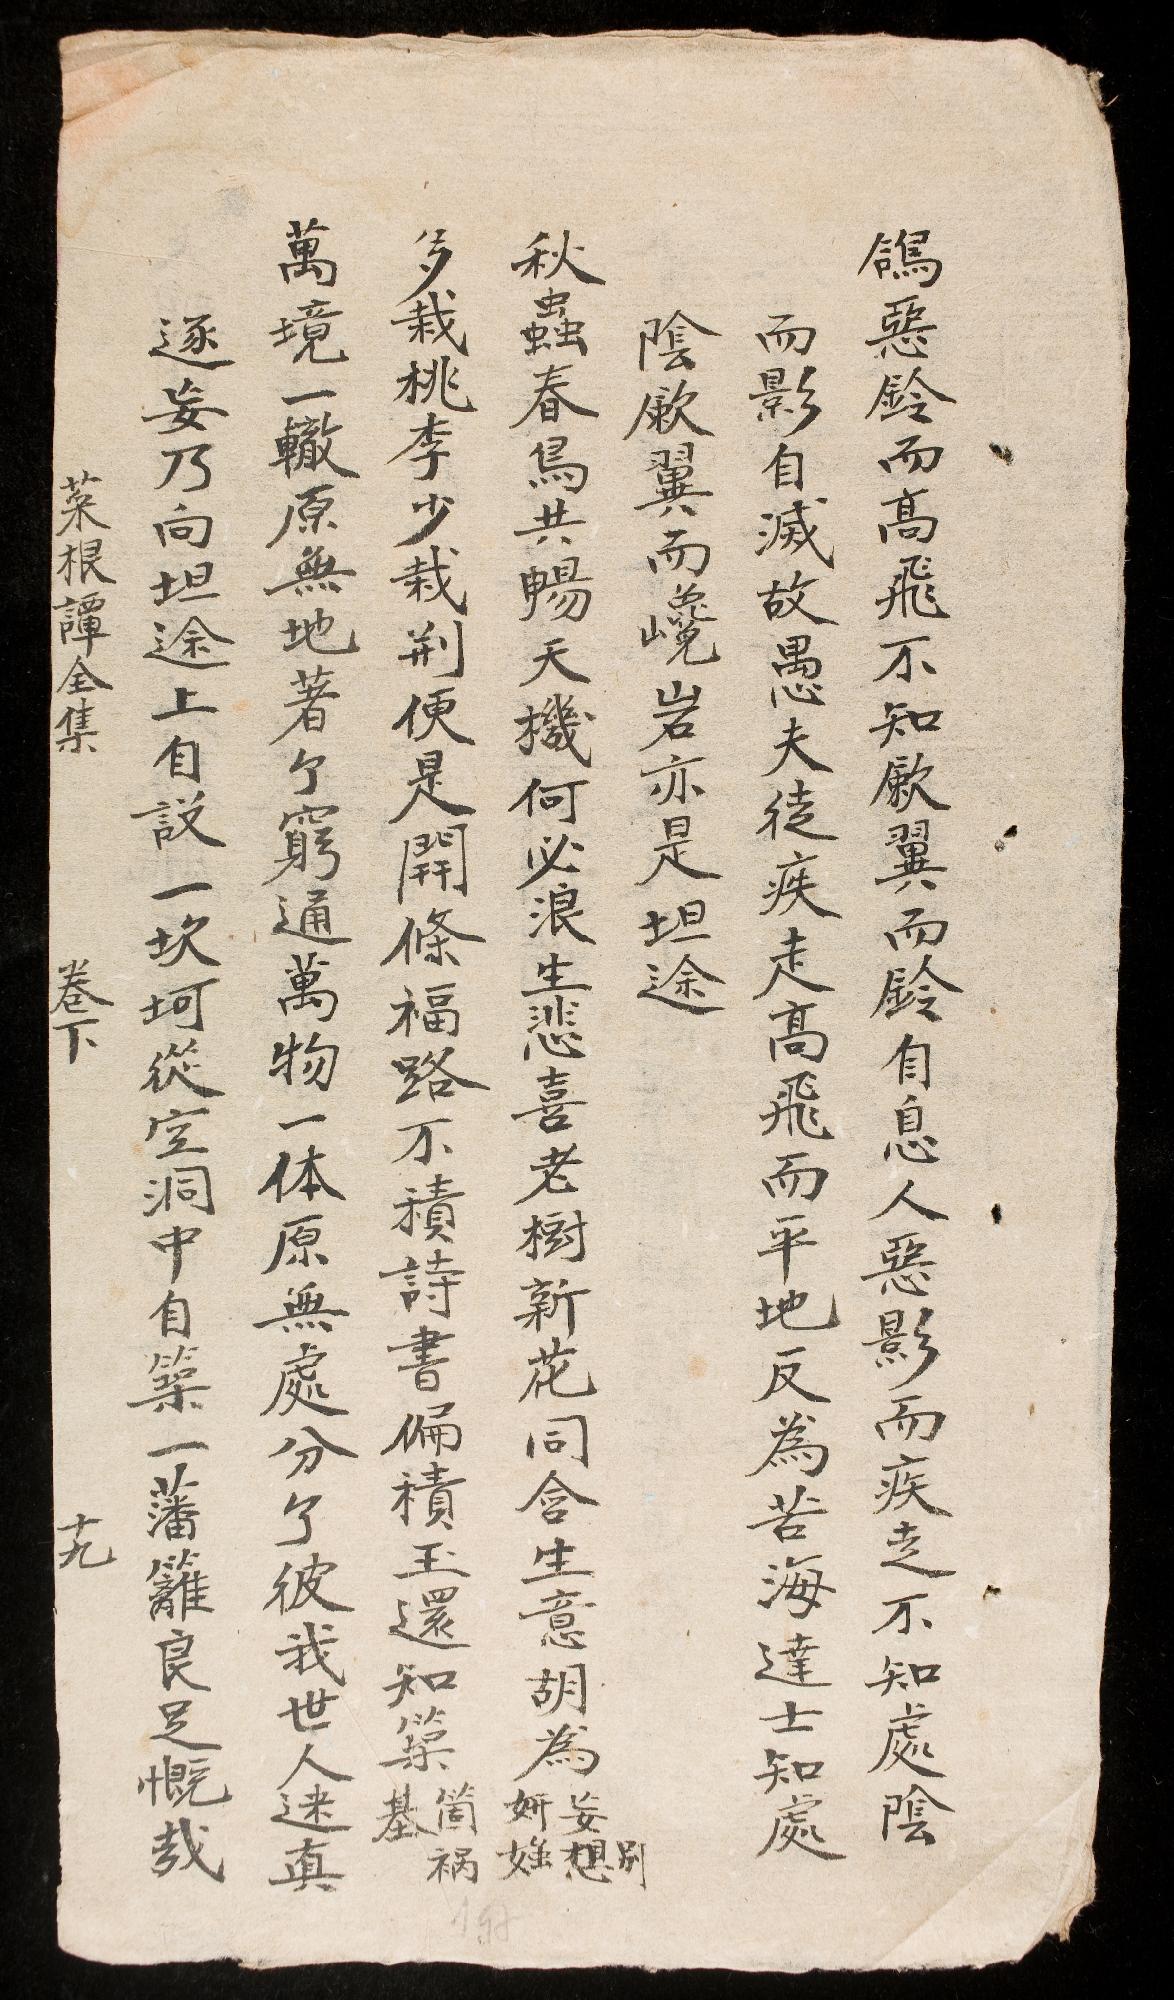 鴿惡鈴而高飛不知厥翼而鈴自息人惡影而疾走不知處陰
而影自滅故愚夫徒疾走高飛而平地反為苦海達士知處
陰厥翼而巉岩亦是坦途
秋蟲春鳥共暢天機何必浪生悲喜老樹新花同含生意胡為妄想別妍媸
多栽桃李少栽荊便是開條福路不積詩書偏積玉還知築箇祸基
萬境一轍原無地著个窮通萬物一体原無處分个彼我世人迷真
逐妄乃向坦途上自設一坎坷從空洞中自築一藩籬良足慨哉
菜根譚全集 卷下 十九